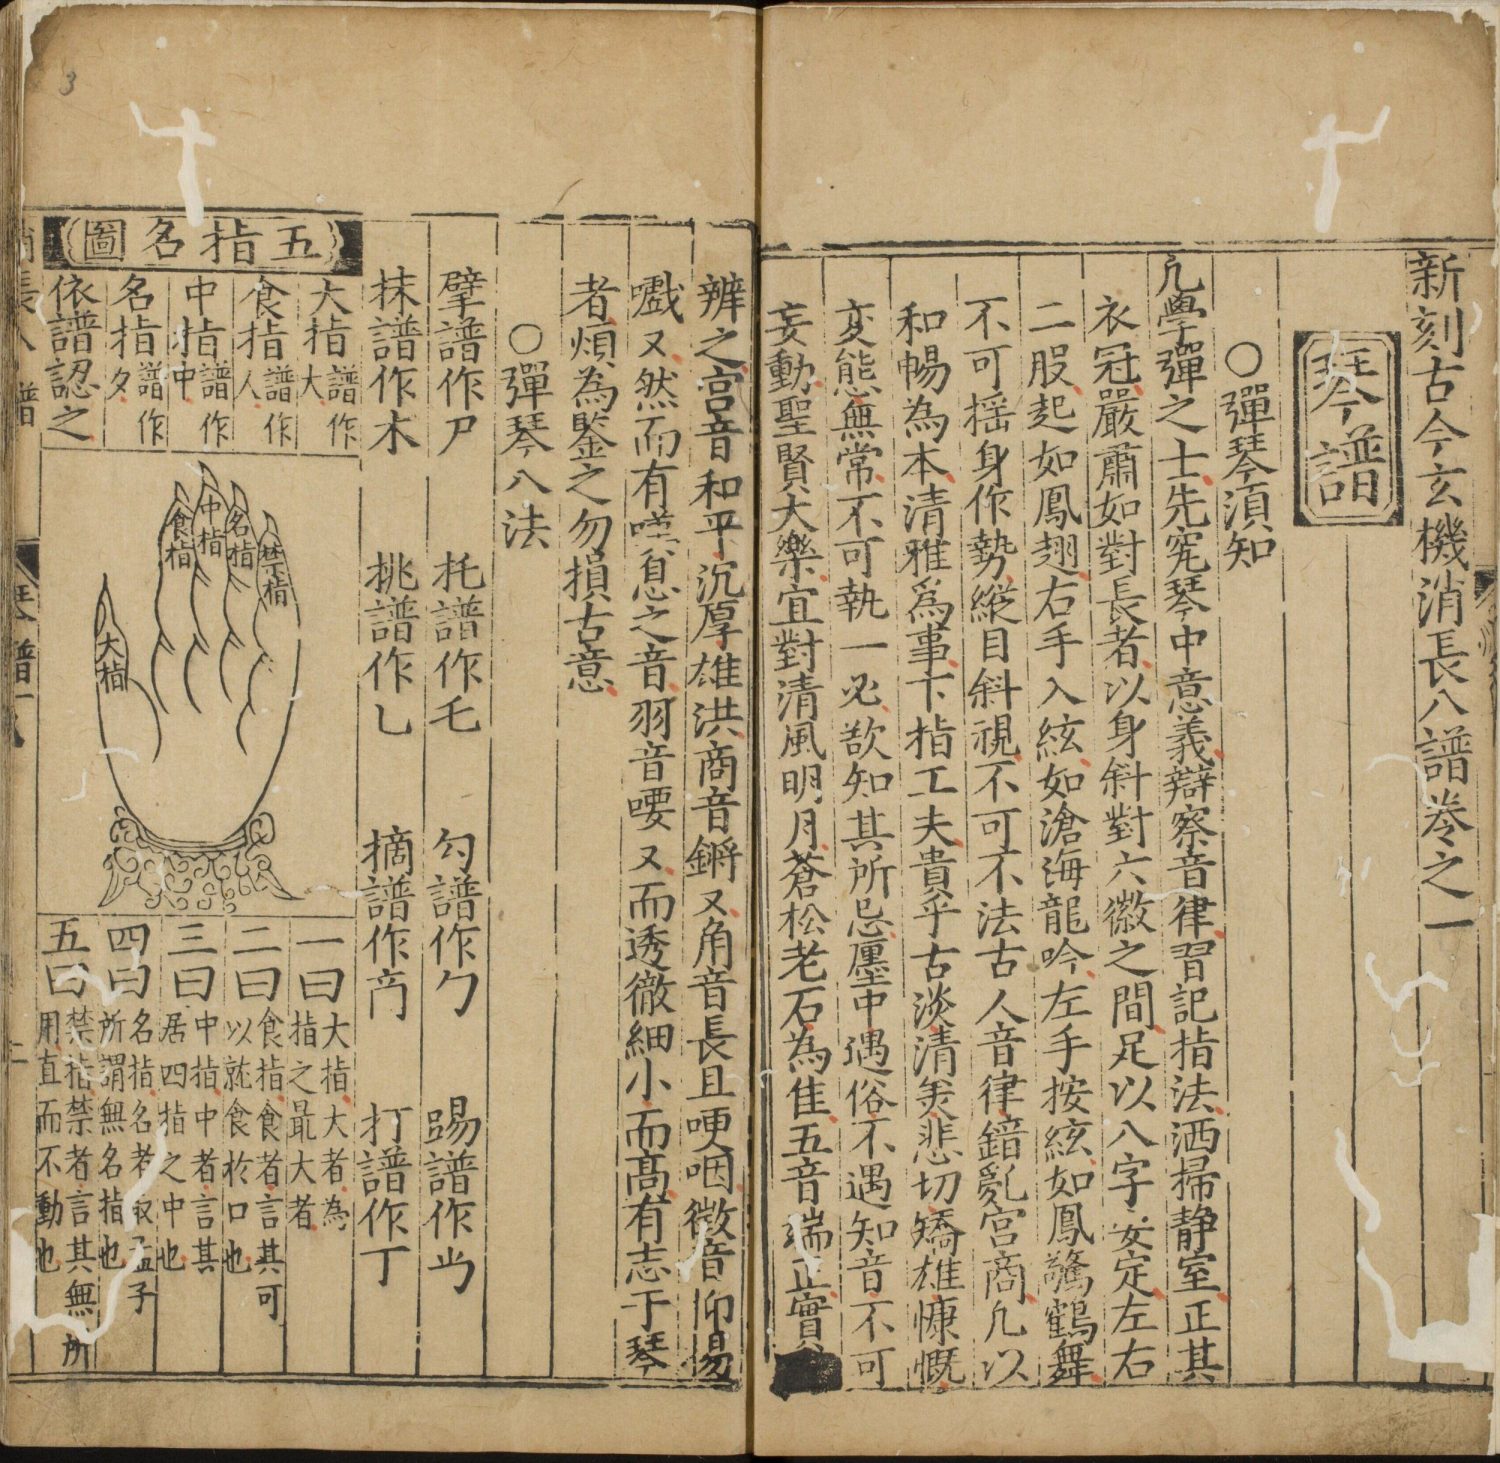 新刻古今玄機消長八譜卷之一
琴譜
○彈琴須知
凡學彈之士先究琴中意義辯察音律習記指法洒掃静室正其
衣冠嚴肅如對長者以身斜對六徽之間足以八字安定左右
二股起如鳳翅右手入絃如滄海龍吟左手按絃如鳳驚鶴舞
不可揺身作勢縱目斜視不可不法古人音律錯亂宮商凡以
和暢為本清雅爲事下指工夫貴乎古淡清美悲切矯雄慷慨
変態無常不可執一必欲知其所忌廛中遇俗不遇知音不可
妄動聖賢大樂宜對清風明月蒼松老石為隹五音端正實
辨之宫音和平沉厚雄洪商音鏘又角音長且哽咽徵音仰揚
嚱又然而有嘆息之音羽音喓又而透徹細小而髙有志于琴
者煩為鑒之勿損古意
○彈琴八法
擘譜作尸 托譜作乇 勾譜作勹 踢譜作
抹譜作木 挑譜作乚 摘譜作 打譜作丁
五指名圖
大指譜作大
食指譜作人
中指譜作中
名指譜作夕
依譜認之
大指
食指
中指
名指
禁指
一曰大指大者為指之最大者
二曰食指食者言其可以就食於口也
三曰中指中者言其居四指之中也
四曰名指名者取孟子所謂無名指也
五曰禁指禁者言其無所用直而不動也
琴譜一